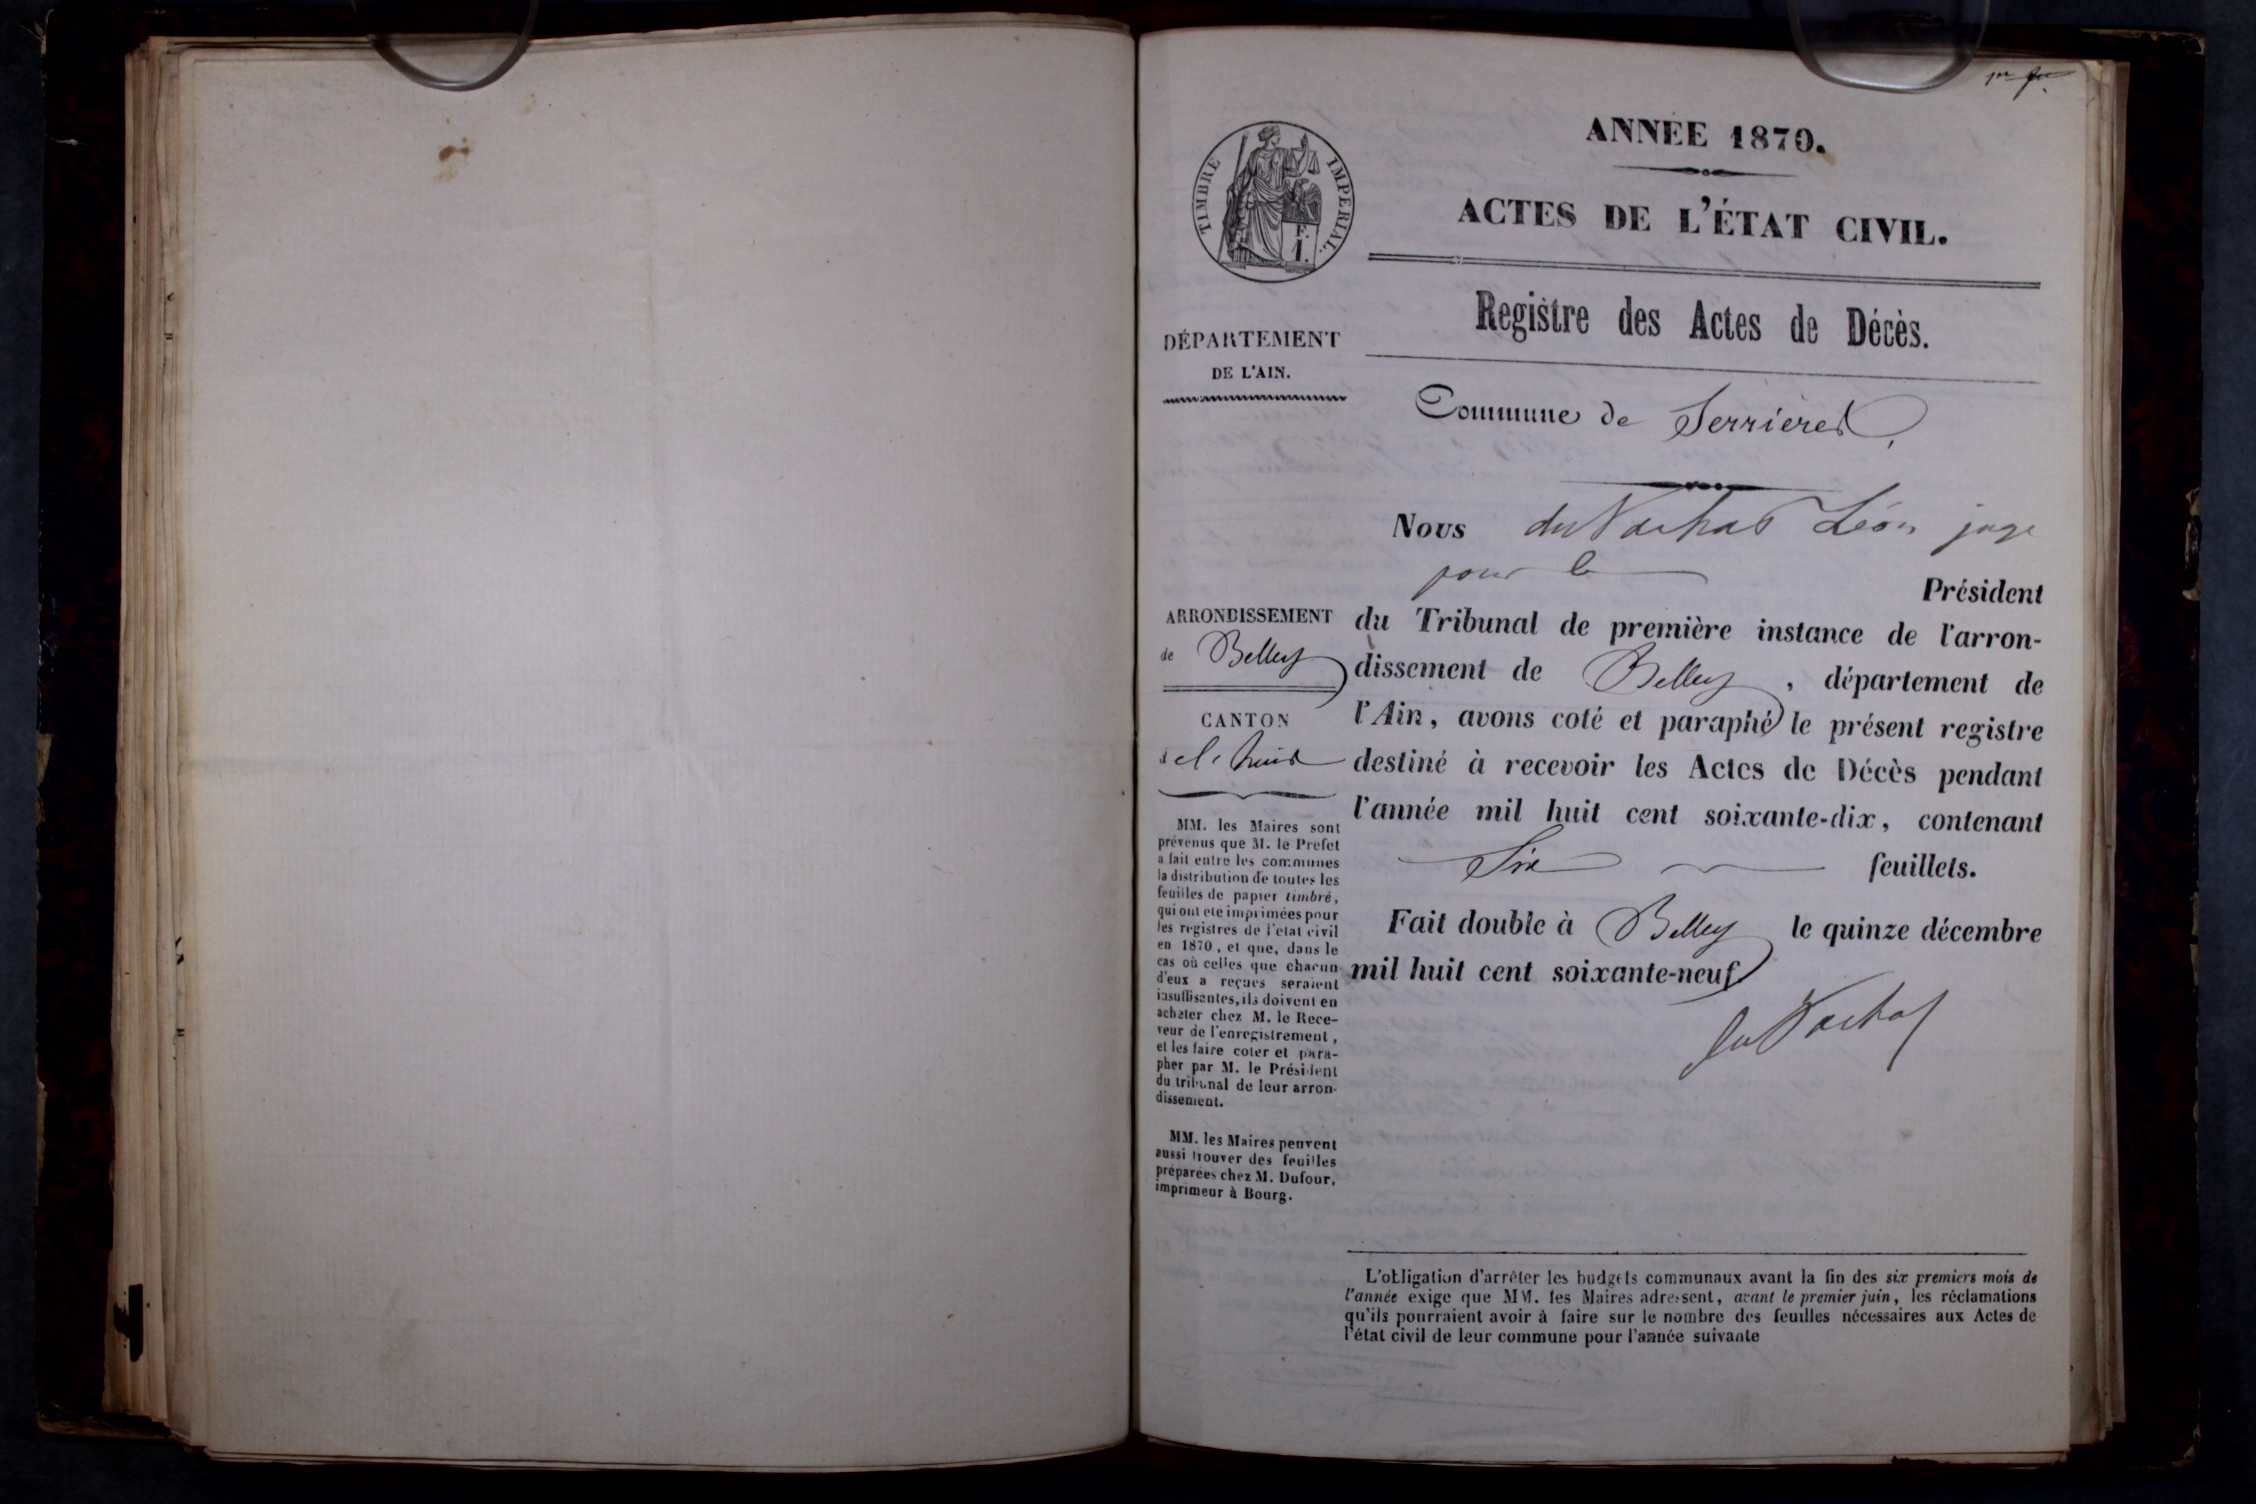 1er f.
ANNÉE 1870.
TIMBRE IMPERIAL.
F. 1.
ACTES DE L'ÉTAT CIVIL.
Registre des Actes de Décès.
DÉPARTEMENT
DE L'AIN.
Commune de Serrières
Nous du Vachat Léon juge
pour le Président
du Tribunal de première instance de l'arron-
dissement de Belley, département de
l'Ain, avons coté et paraphé le présent registre
destiné à recevoir les Actes de Décès pendant
l'année mil huit cent soixante-dix, contenant
Six feuillets.
Fait double à Belley le quinze décembre
mil huit cent soixante-neuf
du Vachat
ARRONDISSEMENT
de Belley
CANTON
de lhuis
MM. les Maires sont
prévenus que M. le Préfet
a fait entre les communes
la distribution de toutes les
feuilles de papier timbré,
qui ont été imprimées pour
les registres de l'état civil
en 1870, et que, dans le
cas où celles que chacun
d'eux a reçues seraient
insuffisantes, ils doivent en
acheter chez M. le Rece-
veur de l'enregistrement,
et les faire coter et para-
pher par M. le Président
du tribunal de leur arron-
dissement.
MM. les Maires peuvent
aussi trouver des feuilles
préparées chez M. Dufour,
imprimeur à Bourg.
L'obligation d'arrêter les budgets communaux avant la fin des six premiers mois de
l'année exige que MM. les Maires adressent, avant le premier juin, les réclamations
qu'ils pourraient avoir à faire sur le nombre des feuilles nécessaires aux Actes de
l'état civil de leur commune pour l'année suivante